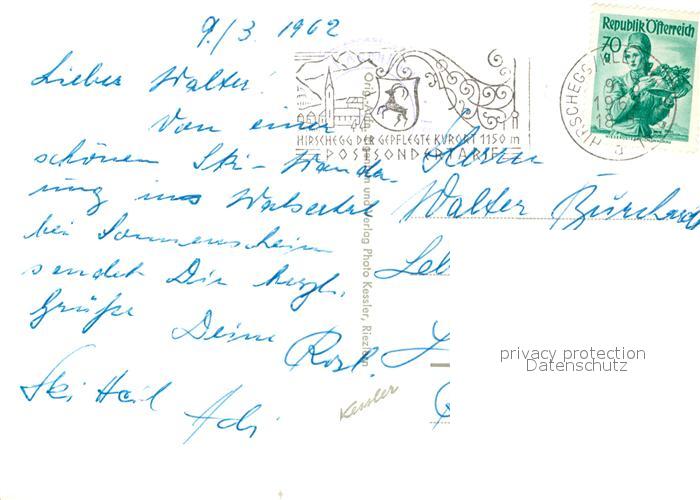 9./3 1962
Lieber Walter!
Von einer
schönen Ski-Wande
rung ins Walsertal
bei Sonnenschein
sendet Dir herzl.
Grüße Deine
Rosl.
Ski Heil Adi.
HIRSCHEGG DER GEPFLEGTE KURORT 1150 m
POSTSONDERTARIF
Republik Österreich
70 g
HIRSCHEGG
Herrn
Walter Burchardt
und Verlag Photo Kessler, Riezlern
Kessler
privacy protection
Datenschutz